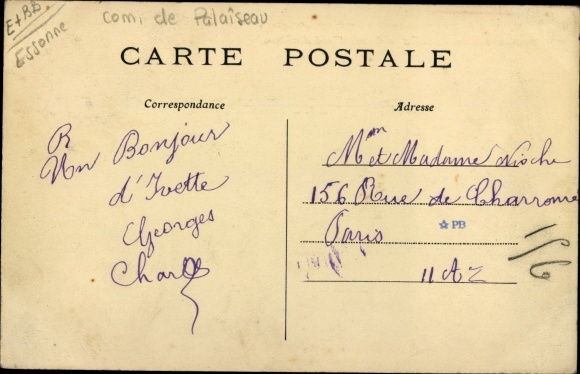 E+BB
Essonne
comi de Palaîseau
CARTE POSTALE
Correspondance
Adresse
R
Un Bonjour
d'Ivette
Georges
Charles
Mr et Madame Nioche
156 Rue de Charronne
Paris
☆ PB
11 Az